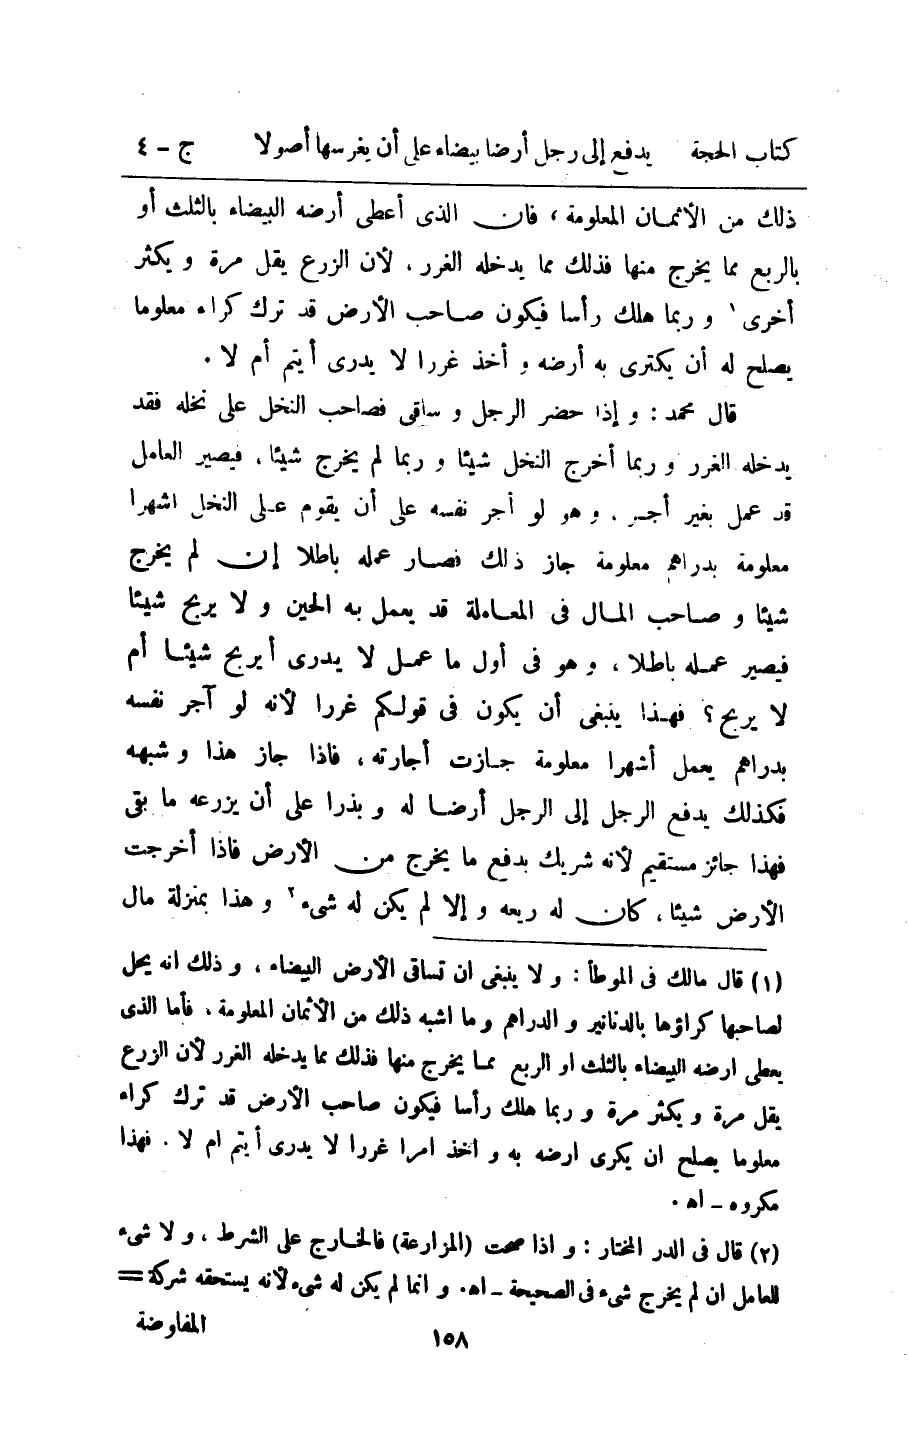 كتاب الحجة يدفع إلى رجل أرضا بيضاء على أن يغرسها أصولا ج – ٤
ذلك من الأثمان المعلومة ، فان الذى أعطى أرضه البيضاء بالثلث أو
بالربع مما يخرج منها فذلك مما يدخله الغرر ، لأن الزرع يقل مرة و يكثر
أخرى ١ و ربما هلك رأسا فيكون صاحب الأرض قد ترك كراء معلوما
يصلح له أن يكترى به أرضه و أخذ غررا لا يدرى أيتم أم لا .
قال محمد : و إذا حضر الرجل و ساقى فصاحب النخل على نخله فقد
يدخله الغرر و ربما أخرج النخل شيئا و ربما لم يخرج شيئا ، فيصير العامل
قد عمل بغير أجر ، و هو لو أجر نفسه على أن يقوم على النخل اشهرا
معلومة بدراهم معلومة جاز ذلك فصار عمله باطلا إن لم يخرج
شيئا و صاحب المال فى المعاملة قد يعمل به الحين و لا يربح شيئا
فيصير عمله باطلا ، و هو فى أول ما عمل لا يدرى أيربح شيئا أم
لا يربح ؟ فهذا ينبغى أن يكون فى قولكم غررا لأنه لو آجر نفسه
بدراهم يعمل أشهرا معلومة جازت أجارته ، فاذا جاز هذا و شبهه
فكذلك يدفع الرجل إلى الرجل أرضا له و بذرا على أن يزرعه ما بقى
فهذا جائز مستقيم لأنه شريك بدفع ما يخرج من الأرض فاذا أخرجت
الأرض شيئا ، كان له ريعه و إلا لم يكن له شىء ٢ و هذا بمنزلة مال
(١) قال مالك فى الموطأ : و لا ينبغى ان تساقى الأرض البيضاء ، و ذلك انه يحل
لصاحبها كراؤها بالدنانير و الدراهم و ما اشبه ذلك من الأثمان المعلومة ، فأما الذى
يعطى ارضه البيضاء بالثلث او الربع مما يخرج منها فذلك مما يدخله الغرر لأن الزرع
يقل مرة و يكثر مرة و ربما هلك رأسا فيكون صاحب الأرض قد ترك كراء
معلوما يصلح ان يكرى ارضه به و اخذ امرا غررا لا يدرى أيتم ام لا . فهذا
مكروه ــ اه .
(٢) قال فى الدر المختار : و اذا صحت (المزارعة) فالخارج على الشرط ، و لا شىء
للعامل ان لم يخرج شىء فى الصحيحة ــ اه . و انما لم يكن له شىء لأنه يستحقه شركة =
المفاوضة
١٥٨